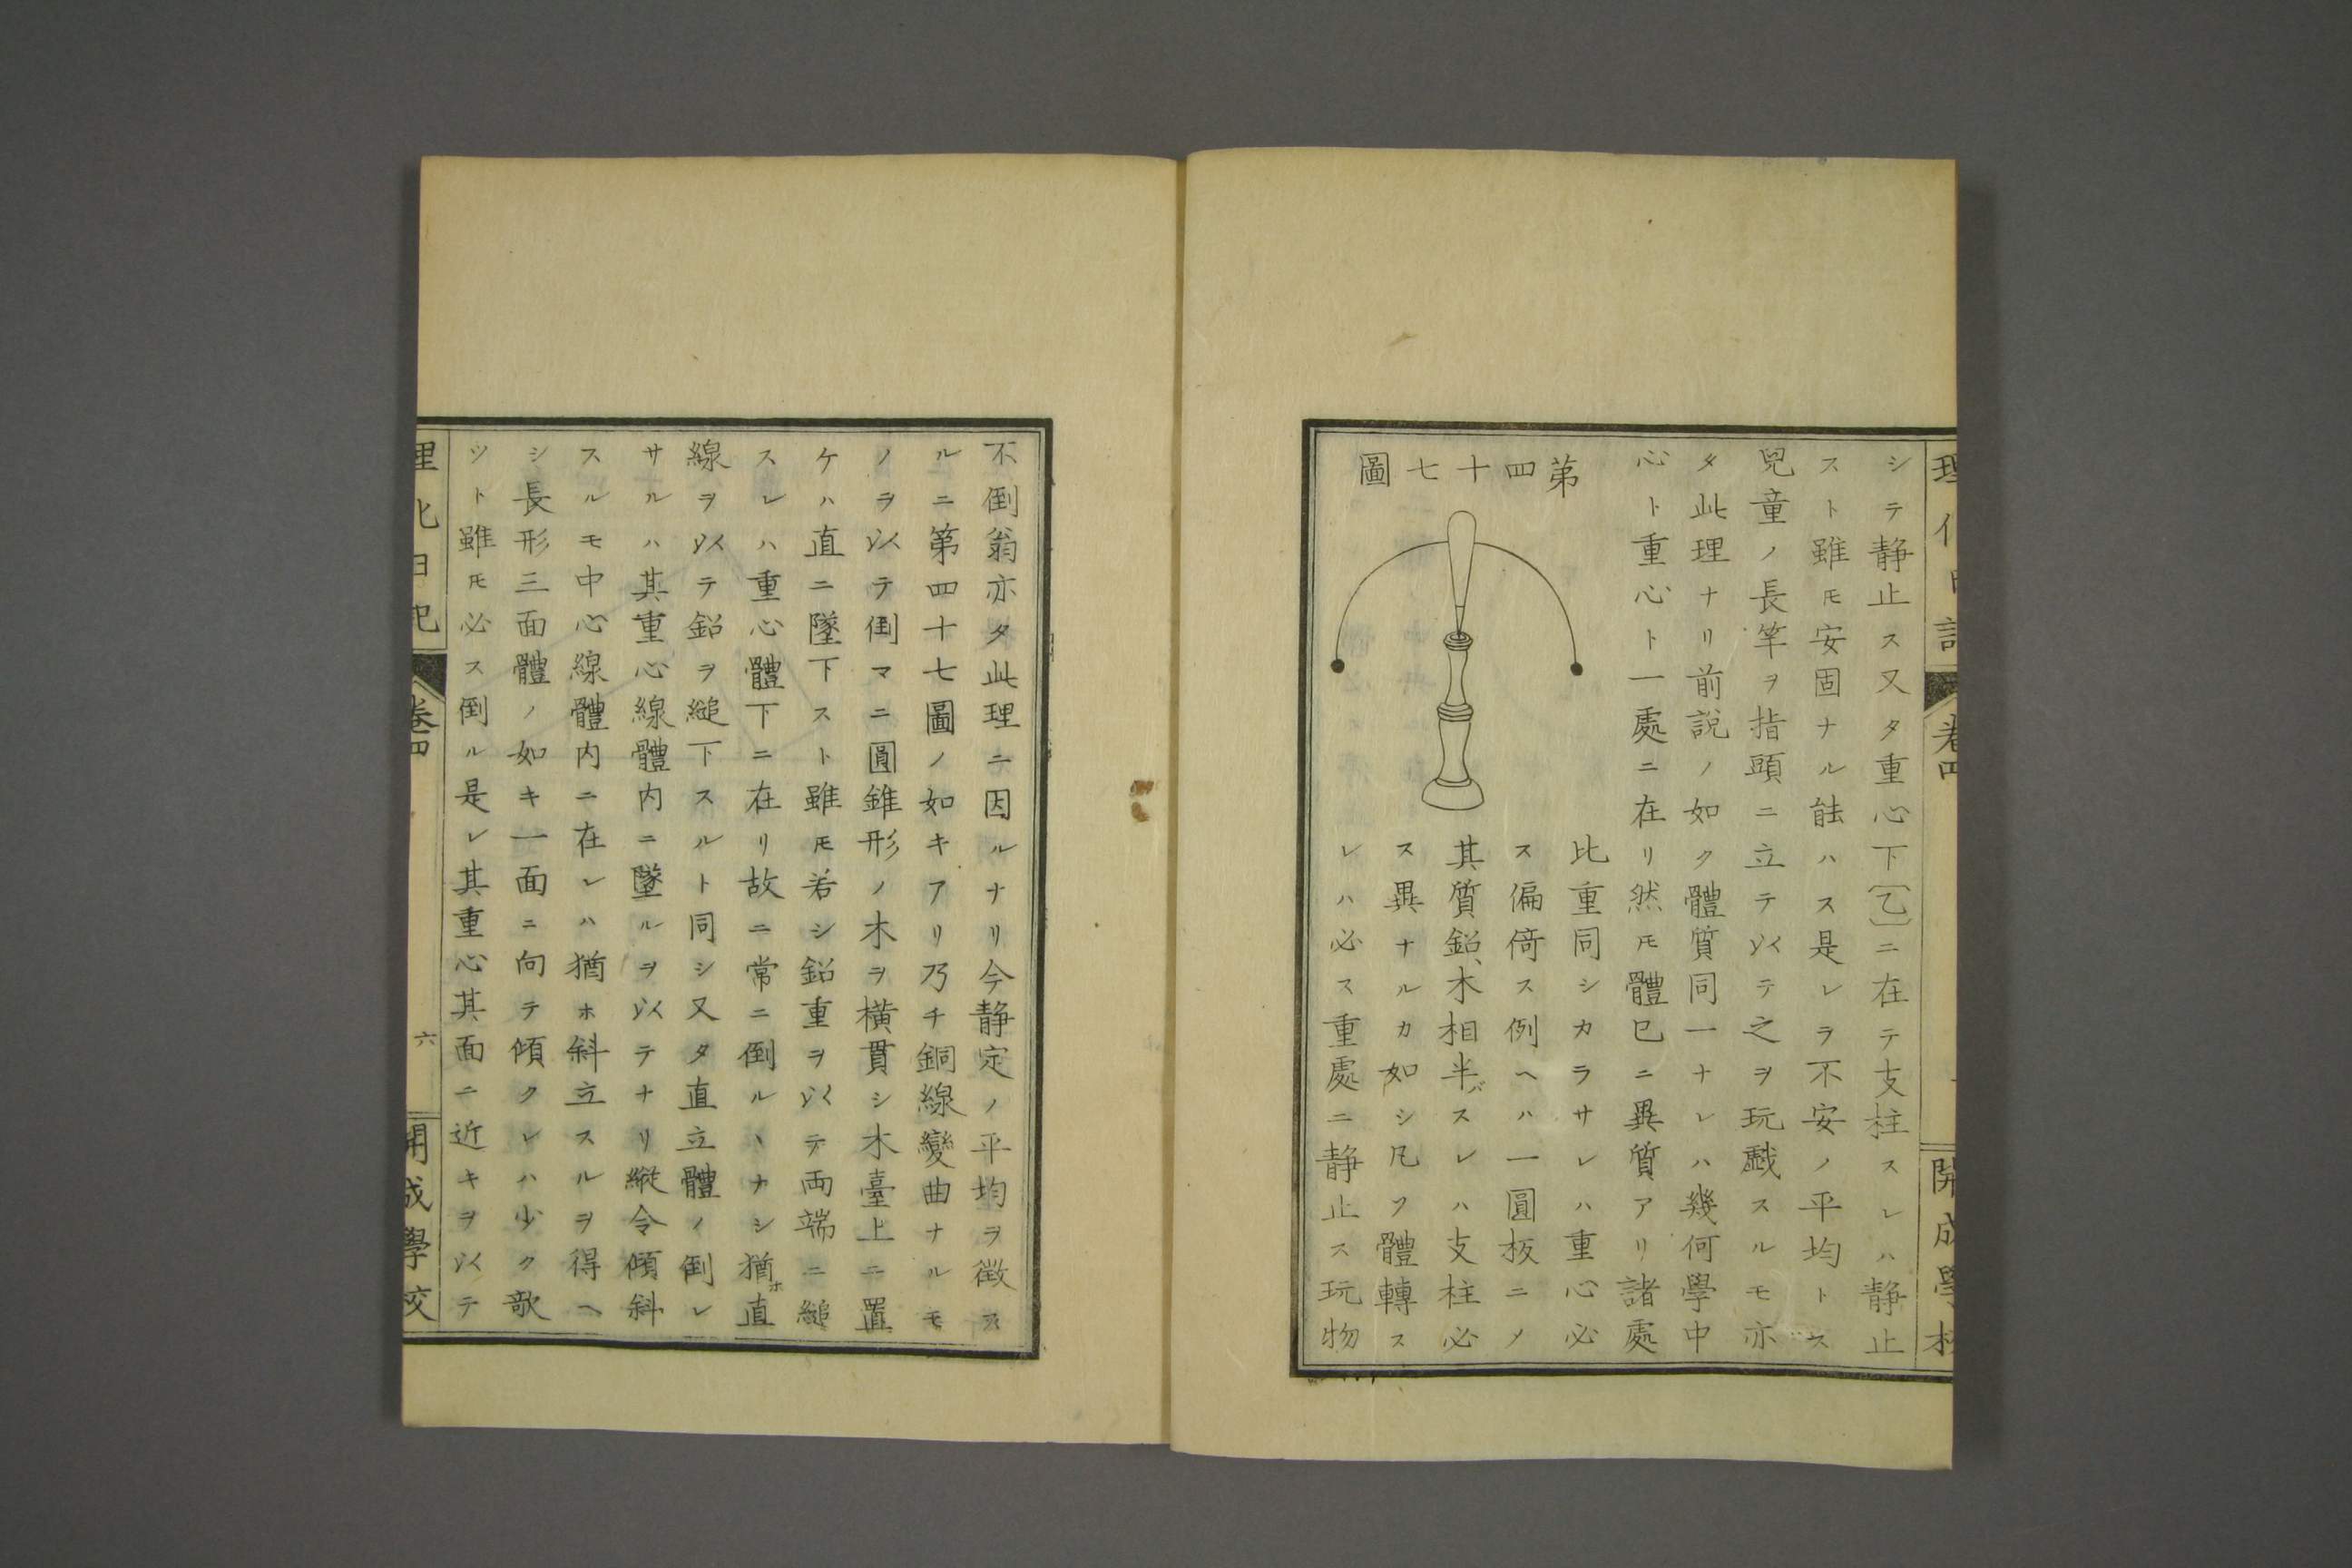 シテ静止ス又タ重心下〔乙〕ニ在テ支柱スレハ静止
スト雖𪜈安固ナル能ハス是レラ不安ノ平均トス
兒童ノ長竿ヲ指頭ニ立テ以テ之ヲ玩戯スルモ亦
タ此理ナリ前説ノ如ク體質同一ナレハ幾何學中
心ト重心ト一處ニ在リ然𪜈體已ニ異質アリ諸處
比重同シカラサレハ重心必
ス偏倚ス例ヘハ一圓板ニノ
其質鉛、木相半バスレハ支柱必
ス異ナルカ如シ凡ソ體轉ス
レハ必ス重處ニ静止ス玩物
第四十七圖
理化日記
卷四
開成學校
不倒翁亦タ此理ニ因ルナリ今静定ノ平均ヲ徴ス
ルニ第四十七圖ノ如キアリ乃チ銅線變曲ナルモ
ノヲ以テ倒マニ圓錐形ノ木ヲ横貫シ木臺上ニ置
ケハ直ニ墜下スト雖𪜈若シ鉛重ヲ以テ両端ニ縋
スレハ重心體下ニ在リ故ニ常ニ倒ルヽナシ猶ホ直
線ヲ以テ鉛ヲ縋下スルト同シ又タ直立體ノ倒レ
サルハ其重心線體内ニ墜ルヲ以テナリ縦令傾斜
スルモ中心線體内ニ在レハ猶ホ斜立スルヲ得ヘ
シ長形三面體ノ如キ一面ニ向テ傾クレハ少ク欹
ツト雖𪜈必ス倒ル是レ其重心其面ニ近キヲ以テ
理化日記
卷四
六
開成學校